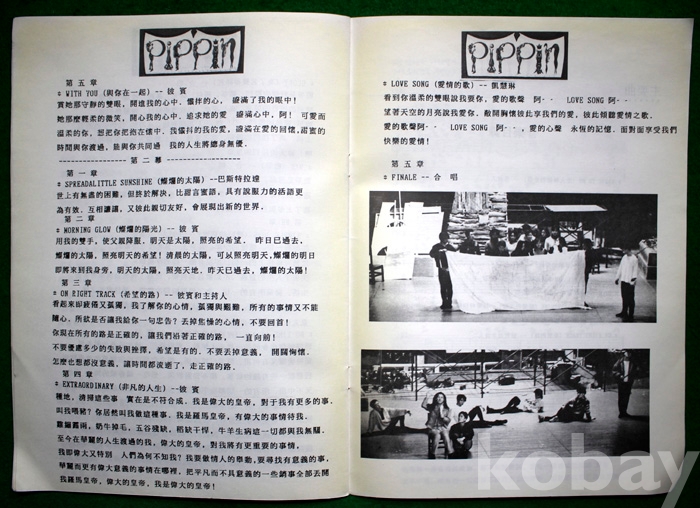 PiPPin
第 五 章
* WITH YOU (與你在一起) -- 彼 賓
她那麼輕柔的微笑,開心我的心中、追求她的愛 盛滿心中,阿! 可愛而
溫柔的你、想把你把抱在懷中、我懂抖的我的愛,盛滿在愛的回憶,甜蜜的
時間與你渡過,能與你共同過 我的人生將總身無優.
---------------- 第 二 幕 ----------------
第 一 章
* SPREADALITTLE SUNSHINE (燦爛的太陽) --巴斯特拉達
世上有無盡的困難,但終於解決、比甜言蜜語,具有說服力的活語更
為有效、互相讓讓,又彼此親切友好,會展現出新的世界.
第 二 章
* MORNING GLOW (燦爛的陽光) -- 彼 賓
用我的雙手,使父親降服、明天是太陽,照亮的希望、 昨日已過去、
燦爛的太陽,照亮明天的希望!清晨的太陽,可以照亮明天,燦爛的明日
即將來到我身旁,明天的太陽,照亮天地、昨天已過去,燦爛的太陽!
第 三 章
* ON RIGHT TRACK (希望的路) -- 彼賓和主持人
看起來即疲倦又孤獨,我了解你的心情,孤獨與艱難,所有的事情又不能
隨心、所欲是否讓我給你一句忠告?丟掉焦慢的心情,不要回首!
你現在所有的路是正確的,讓我們沿著正確的路, 一直向前!
不要優慮多少的失敗與挫擇,希望是有的、不要丟掉意義, 開闊悔懷.
怎麼也想都沒意義、讓時間都流逝了,走正確的路.
第 四 章
* EXTRAORDINARY (非凡的人生) --彼 賓
種地,清掃這些事 實在是不符合成、我是偉大的皇帝,對于我有更多的事、
叫我喂豬?你居然叫我做這種事、我是羅馬皇帝,有偉大的事情待我、
奶牛掉毛,五谷殘缺,稻缺干悍,牛羊生病這一切都與我無關.
至今在華麗的人生渡過的我,偉大的皇帝,對我將有更重要的事情,
我即偉大又特別 人們為何不知我?我要做惰人的舉動,要尋找有意義的事,
華麗而更有偉大意義的事情在哪裡、把平凡而不具意義的一些銷事全部丟開
我羅馬皇帝,偉大的皇帝,我是偉大的皇帝!
PiPPin
* LOVE SONG (愛情的歌) -- 凱慧琳
看到你溫柔的雙眼說我要你,愛的歌聲 阿‥ LOVE SONG 阿‥
望著天空的月亮說我愛你、敞開胸懷彼此享我們的愛,彼此傾聽愛情之歌、
愛的歌聲阿‥ LOVE SONG 阿‥,愛的心聲 永恆的記憶、面對面享受我們
快樂的愛情!
第 五 章
* FINALE -- 合 唱
kobay